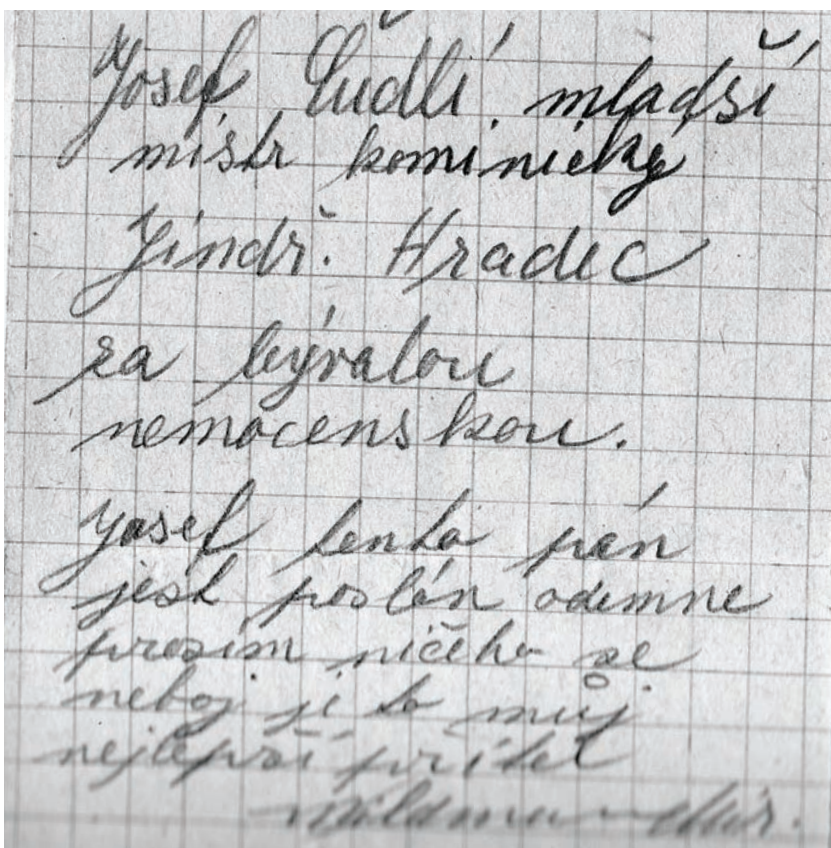 Josef Čudlí. mladší
mistr kominický
Jindř. Hradec
za bývalou
nemocenskou.
Josef tento pán
jest poslán odemne
prosím ničeho se
neboj je to můj
nejlepší přítel